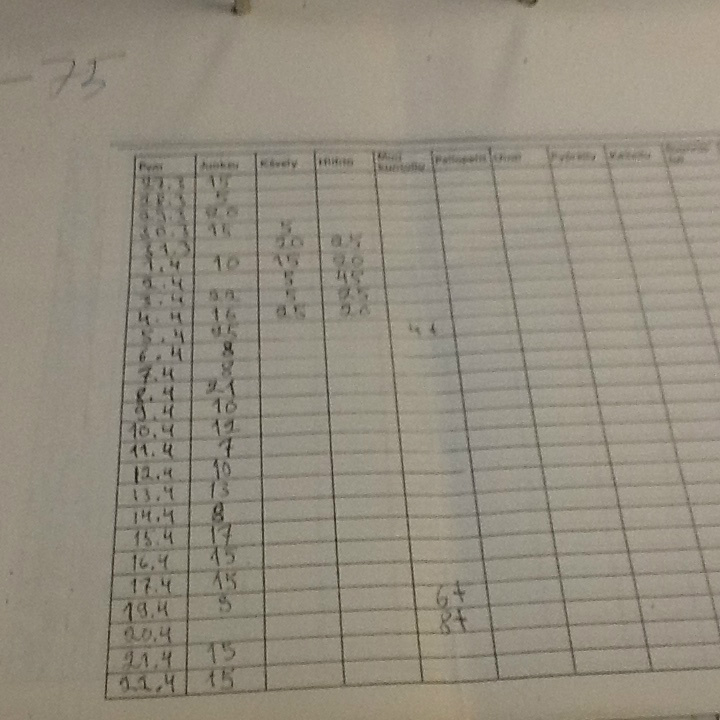 -75
Pvm Juoksu Kävely Hiihto Muu kuntoilu Pallopeli Uinti Pyöräily
27.3 15
28.3 5
29.3 20
30.3 15 5
31.3 20 25
1.4 10 15 20
2.4 5 45
3.4 22 5 25
4.4 16 25 20
5.4 25
6.4 8
7.4 8
8.4 21
9.4 10
10.4 12
11.4 7
12.4 10
13.4 13
14.4 8
15.4 17
16.4 15
17.4 15
19.4 5 6t
20.4 8t
21.4 15
22.4 15